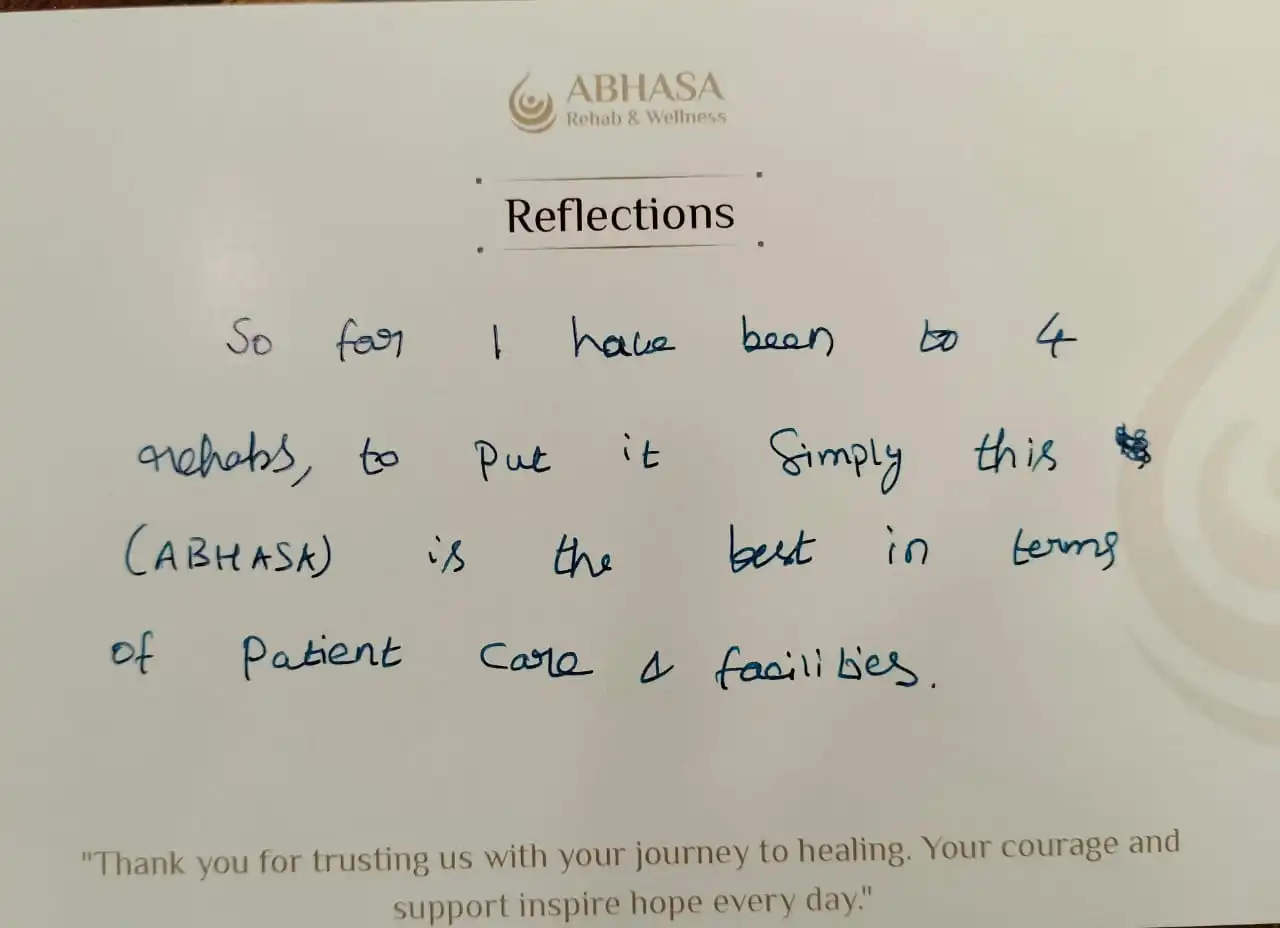 ABHASA
Rehab & Wellness
Reflections
So far I have been to 4
rehabs, to put it Simply this
(ABHASA) is the best in terms
of Patient Care & facilities.
"Thank you for trusting us with your journey to healing. Your courage and
support inspire hope every day."